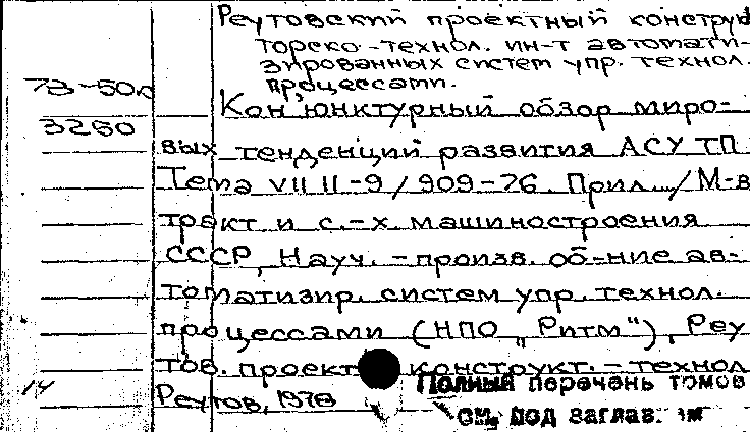 Реутовский проектный конструк
торско-технол. ин-т автомати-
зированных систем упр. технол.
процессами.
73-50
Кон'юнктурный обзор миро-
3260
вых тенденций развития АСУ ТП
Тема VII II-9/909-76. Прил.../М-в
тракт и с.-х. машиностроения
СССР, Науч.-произв. об-ние ав-
томатизир. систем упр. технол.
процессами (НПО „Ритм"), Реу
тов. проект конструкт.-технол
14
Реутов, 1976
Полный перечень томов
см. под заглав.